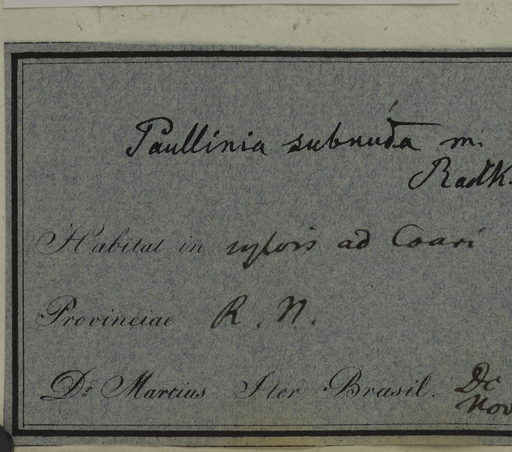 Paullinia subnuda m.
Radlk.
Habitat in sylvis ad Coari
Provinciae R. N.
Dr Martius Iter Brasil. Dc
Nov